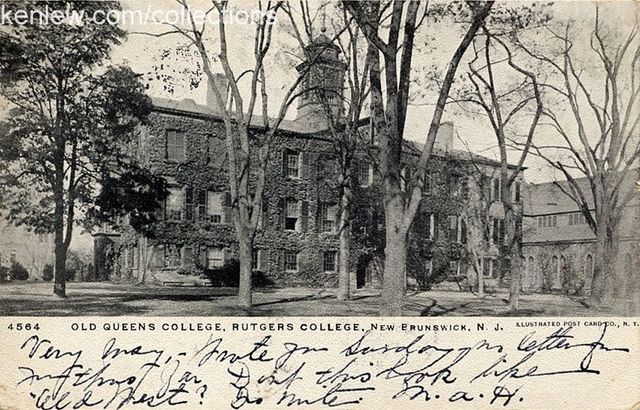 kenlew.com/collections
4564 OLD QUEENS COLLEGE, RUTGERS COLLEGE, NEW BRUNSWICK, N. J. ILLUSTRATED POST CARD CO., N. Y.
Very May, - Wrote you Sunday no letter from
thus far. Don't this look like
"Old West"? Do write. M. a. H.